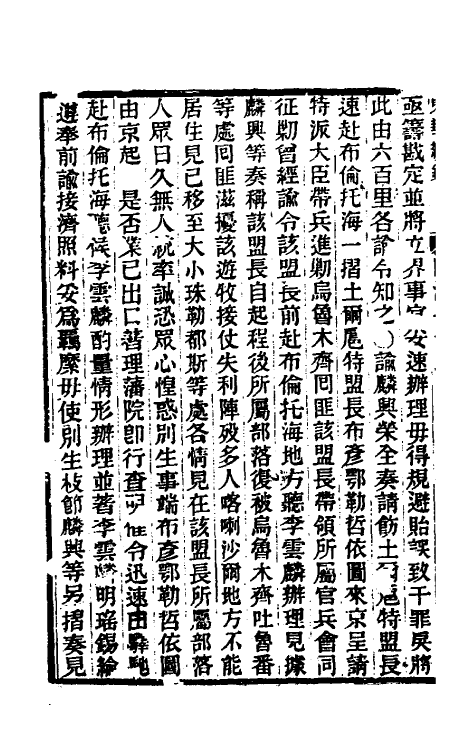 亟籌戡定並將立界事宜安速辦理毋得規避貽誤致干罪戾將
此由六百里各諭令知之○諭麟興榮全奏請飭土爾扈特盟長
速赴布倫托海一摺土爾扈特盟長布彥鄂勒哲依圖來京呈請
特派大臣帶兵進勦烏魯木齊回匪該盟長帶領所屬官兵會同
征勦曾經諭令該盟長前赴布倫托海地方聽李雲麟辦理見據
麟興等奏稱該盟長自起程後所屬部落復被烏魯木齊吐魯番
等處回匪滋擾該遊牧接仗失利陣歿多人喀喇沙爾地方不能
居住見已移至大小珠勒都斯等處各情見在該盟長所屬部落
人眾日久無人統率誠恐眾心惶惑別生事端布彥鄂勒哲依圖
由京起 是否業已出口著理藩院卽行查明 催令迅速由驛馳
赴布倫托海聽候李雲麟酌量情形辦理並著李雲麟明瑤錫綸
遵奉前諭接濟照料妥爲羈縻毋使別生枝節麟興等另摺奏見